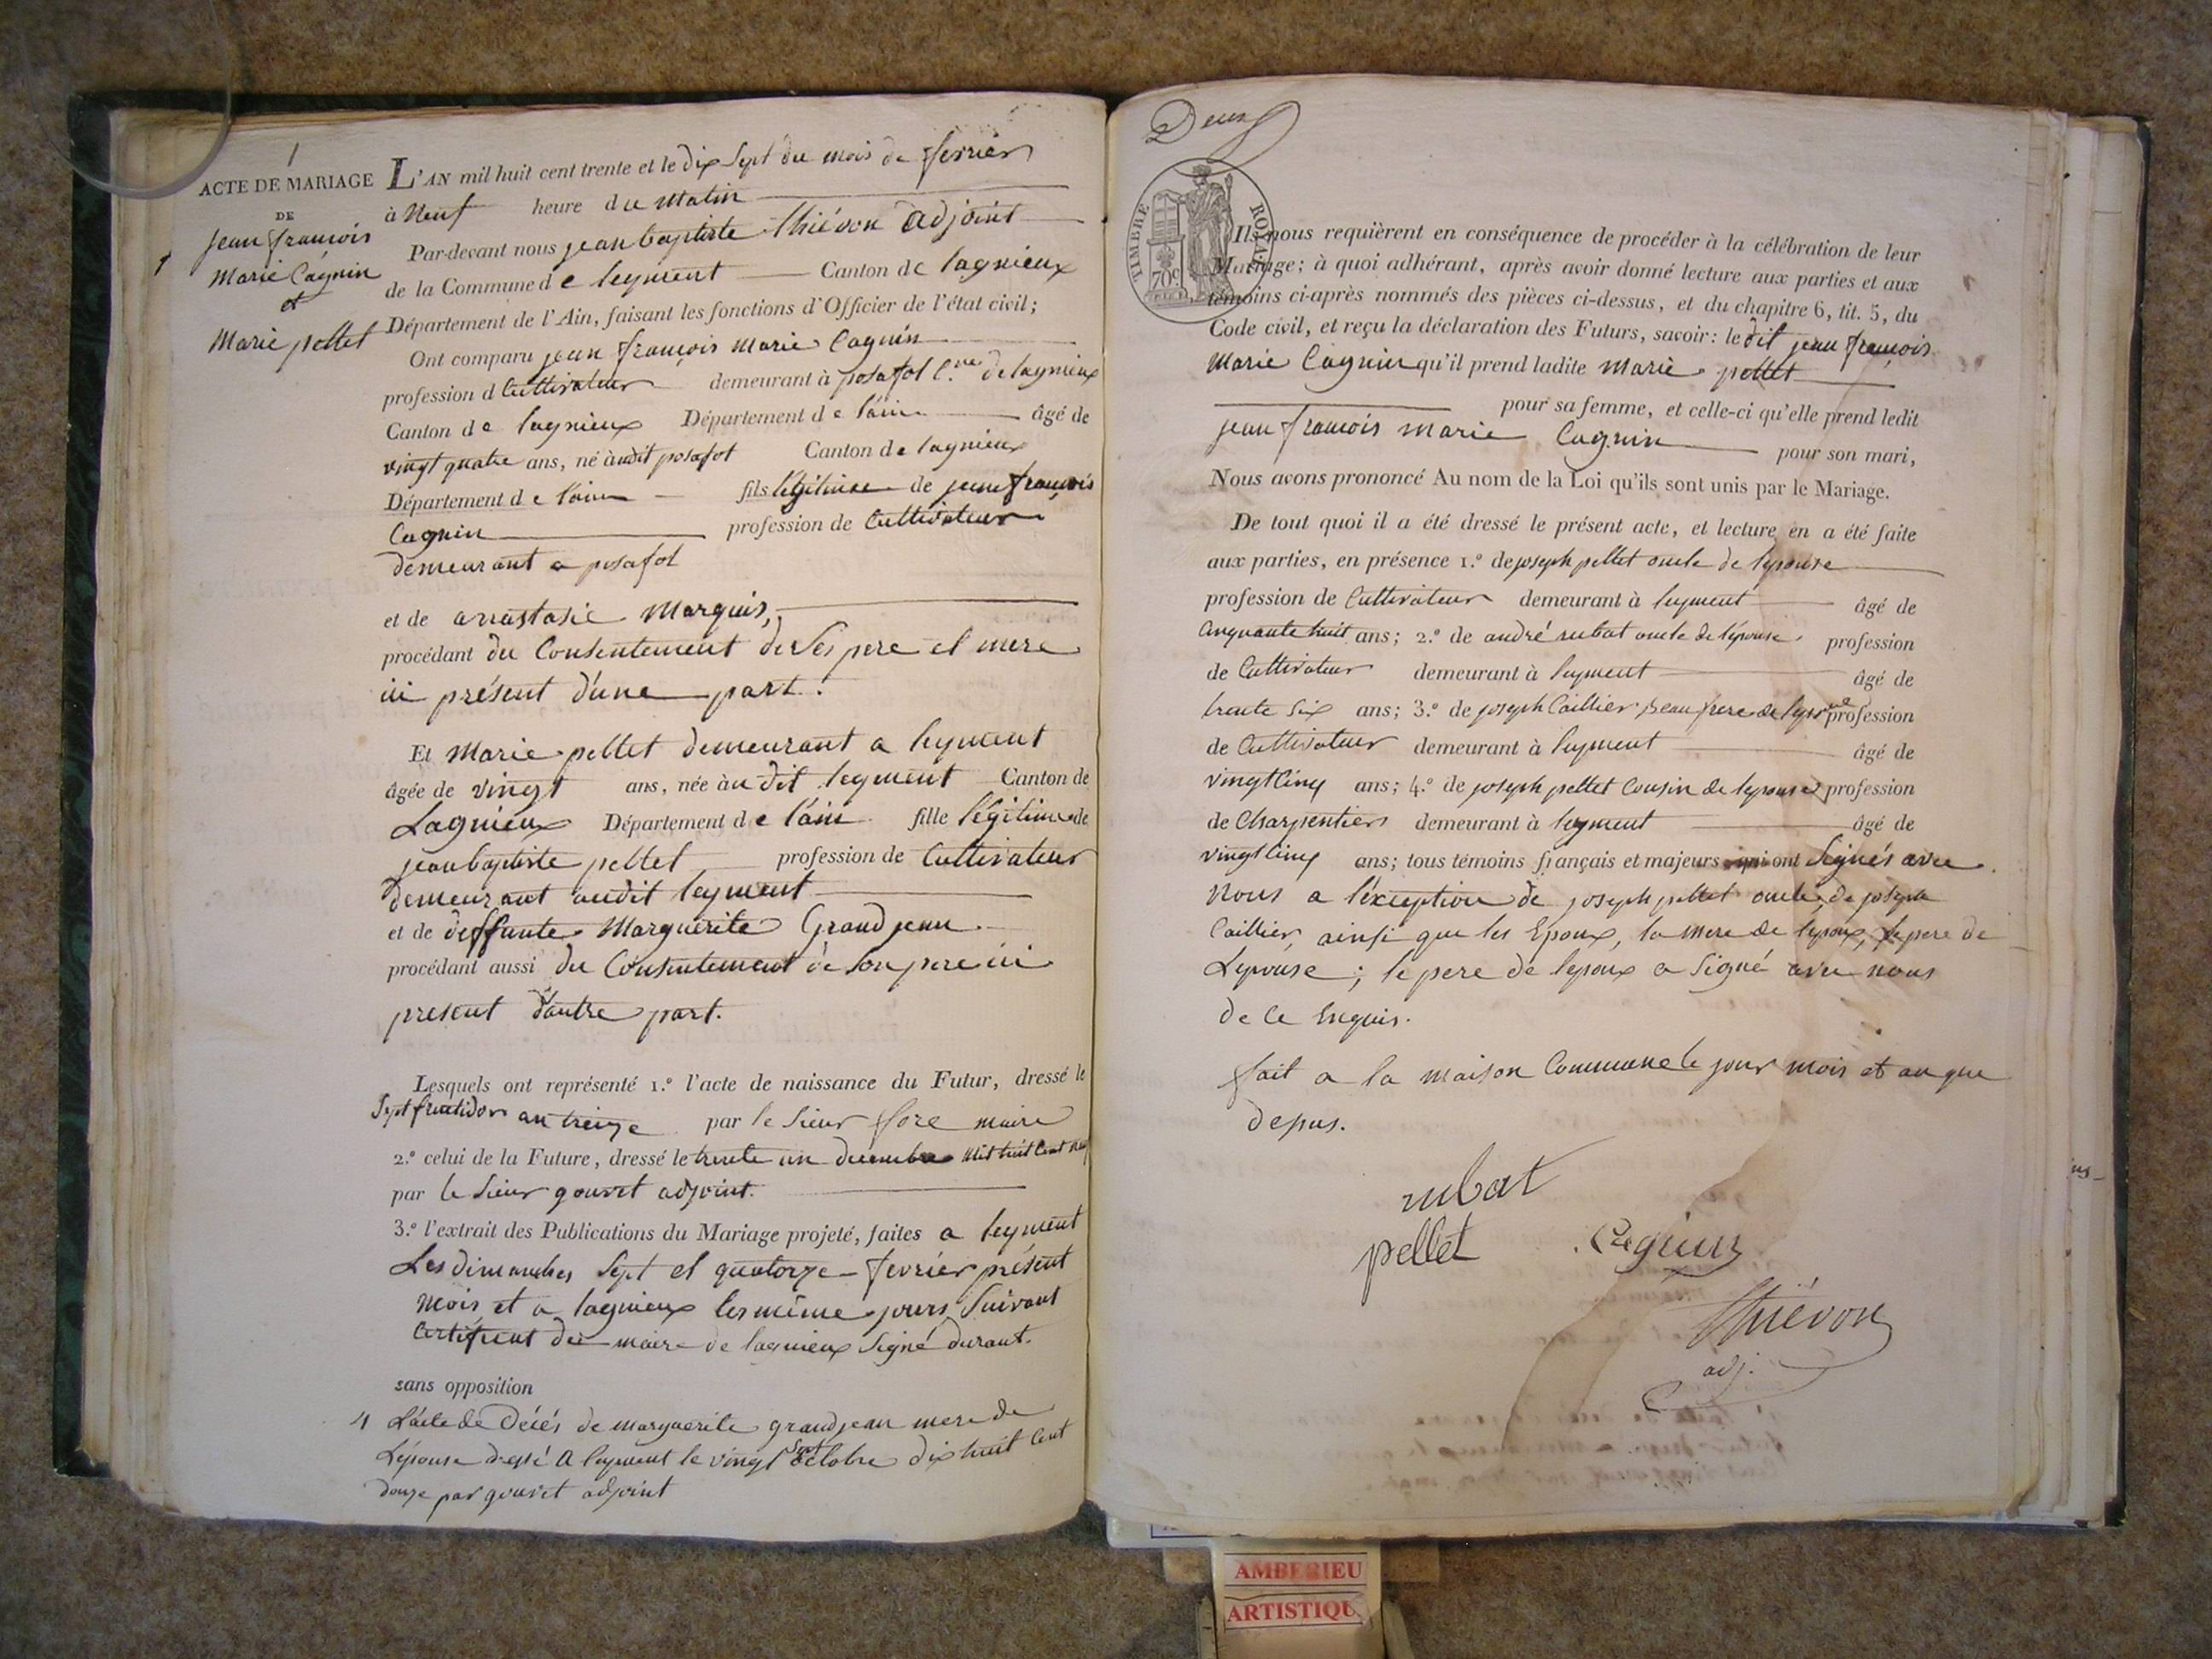 1
ACTE DE MARIAGE
DE
jean françois
marie Cagnin
et
Marie pellet
L'AN mil huit cent trente et le dix Sept du mois de fevrier
à Neuf heure du Matin
Par-devant nous jean baptiste thiévon adjoint
de la Commune de leyment Canton de lagnieux
Département de l'Ain, faisant les fonctions d'Officier de l'état civil;
Ont comparu jean françois marie Cagnin
profession d Cultivateur demeurant à posafol C.ne de lagnieux
Canton de lagnieux Département de l'ain âgé de
vingt quatre ans, né audit posafol Canton de lagnieux
Département de l'ain fils légitime de jean françois
Cagnin profession de Cultivateur
demeurant a posafol
et de anastasie Marquis,
procédant du Consentement de Ses pere et mere
ici présent d'une part.
Et Marie pellet demeurant a leyment
âgée de vingt ans, née àu dit leyment Canton de
Lagnieux Département de l'ain fille légitime de
jean baptiste pellet profession de Cultivateur
demeurant audit leyment
et de deffunte Marguerite Grand jean
procédant aussi du Consentement de Son pere ici
present d'autre part.
Lesquels ont représenté 1.º l'acte de naissance du Futur, dressé le
Sept fructidor an treize par le Sieur fore maire
2.º celui de la Future, dressé le trente un decembre mil huit Cent neuf
par le Sieur gouvet adjoint.
3.º l'extrait des Publications du Mariage projeté, faites a leyment
Les dimanches Sept et quatorze fevrier présent
mois et a lagnieux les même jours Suivant
Certificat du maire de lagnieux Signé durant.
sans opposition
4 L'acte de Décés de marguerite grandjean mere de
L'épouse dressé a leyment le vingt Sept octobre dix huit Cent
douze par gouvet adjoint
Deux
TIMBRE ROYAL
70c
Ils nous requièrent en conséquence de procéder à la célébration de leur
Mariage; à quoi adhérant, après avoir donné lecture aux parties et aux
témoins ci-après nommés des pièces ci-dessus, et du chapitre 6, tit. 5, du
Code civil, et reçu la déclaration des Futurs, savoir: le dit jean françois
Marie Cagnin qu'il prend ladite marie pellet
pour sa femme, et celle-ci qu'elle prend ledit
jean françois marie Cagnin pour son mari,
Nous avons prononcé Au nom de la Loi qu'ils sont unis par le Mariage.
De tout quoi il a été dressé le présent acte, et lecture en a été faite
aux parties, en présence 1.º de joseph pellet oncle de lepouse
profession de Cultivateur demeurant à leyment âgé de
Cinquante huit ans; 2.º de andré rubat oncle de l'épouse profession
de Cultivateur demeurant à leyment âgé de
trente Six ans; 3.º de joseph Caillier beau frere de lepouse profession
de Cultivateur demeurant à leyment âgé de
vingt Cinq ans; 4.º de joseph pellet Cousin de lepouse profession
de Charpentier demeurant à leyment âgé de
vingt Cinq ans; tous témoins français et majeurs qui ont Signés avec
nous a l'exception de joseph pellet oncle, de joseph
Caillier, ainsi que les Epoux, la mere de lepoux, le pere de
Lepouse; le pere de lepoux a Signé avec nous
de ce Enquis.
fait a la maison Commune le jour mois et an que
depus.
rubat
pellet Cagnin
Thiévon
adj.
AMBERIEU
ARTISTIQU